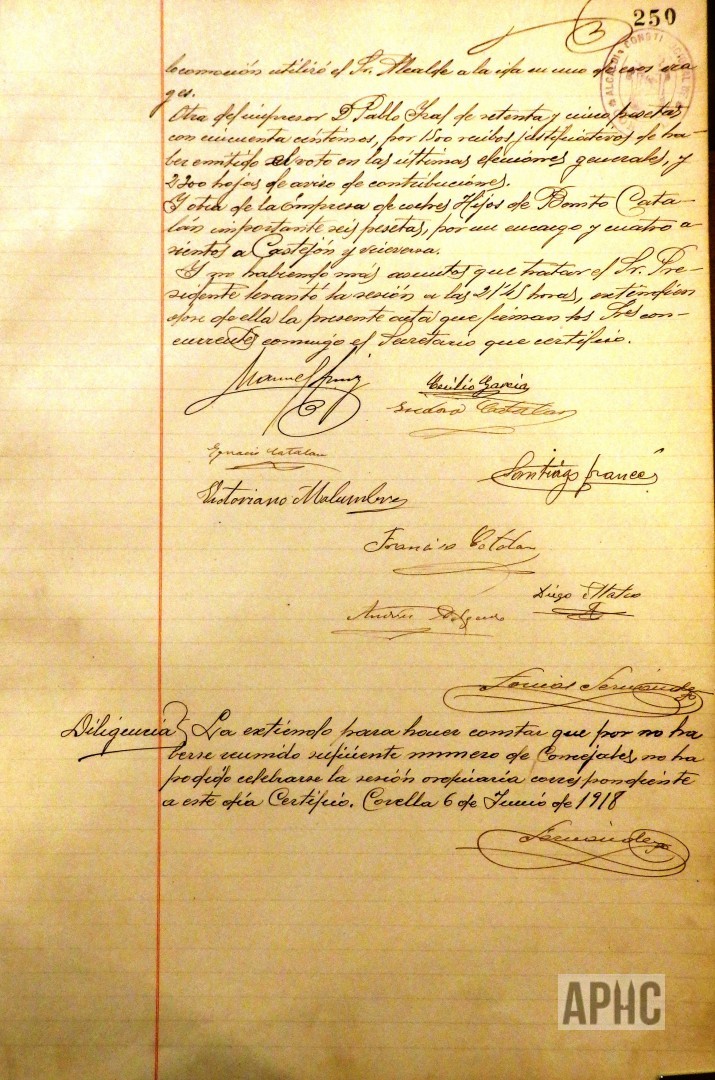 250
locomoción utilizó el Sr. Alcalde a la ida en uno de esos via
ges.
Otra del impresor D. Pablo Graf de setenta y cinco pesetas
con cincuenta céntimos, por 1500 recibos justificativos de ha
ber emitido el voto en las últimas elecciones generales, y
2300 hojas de aviso de contribuciones.
Y otra de la Empresa de coches Hijos de Bonito Cata
lán importante seis pesetas, por un encargo y cuatro a
sientos a Castejón y viceversa.
Y no habiendo más asuntos que tratar el Sr. Pre-
sidente levantó la sesión a las 21'45 horas, extendien
dose de ella la presente acta que firman los Sres con-
currentes conmigo el Secretario que certifico.
Manuel
Emilio García
Isidoro Catalan
Ignacio Catalan
Santiago Francés
Victoriano Malumbres
Francisco Catalan
Diego Mateo
Andrés Delgado
Tomás Fernández
Diligencia) La extiendo para hacer constar que por no ha
berse reunido suficiente numero de Concejales, no ha
podido celebrarse la sesión ordinaria correspondiente
a este día Certifico. Corella 6 de Junio de 1918
Fernández
APHC